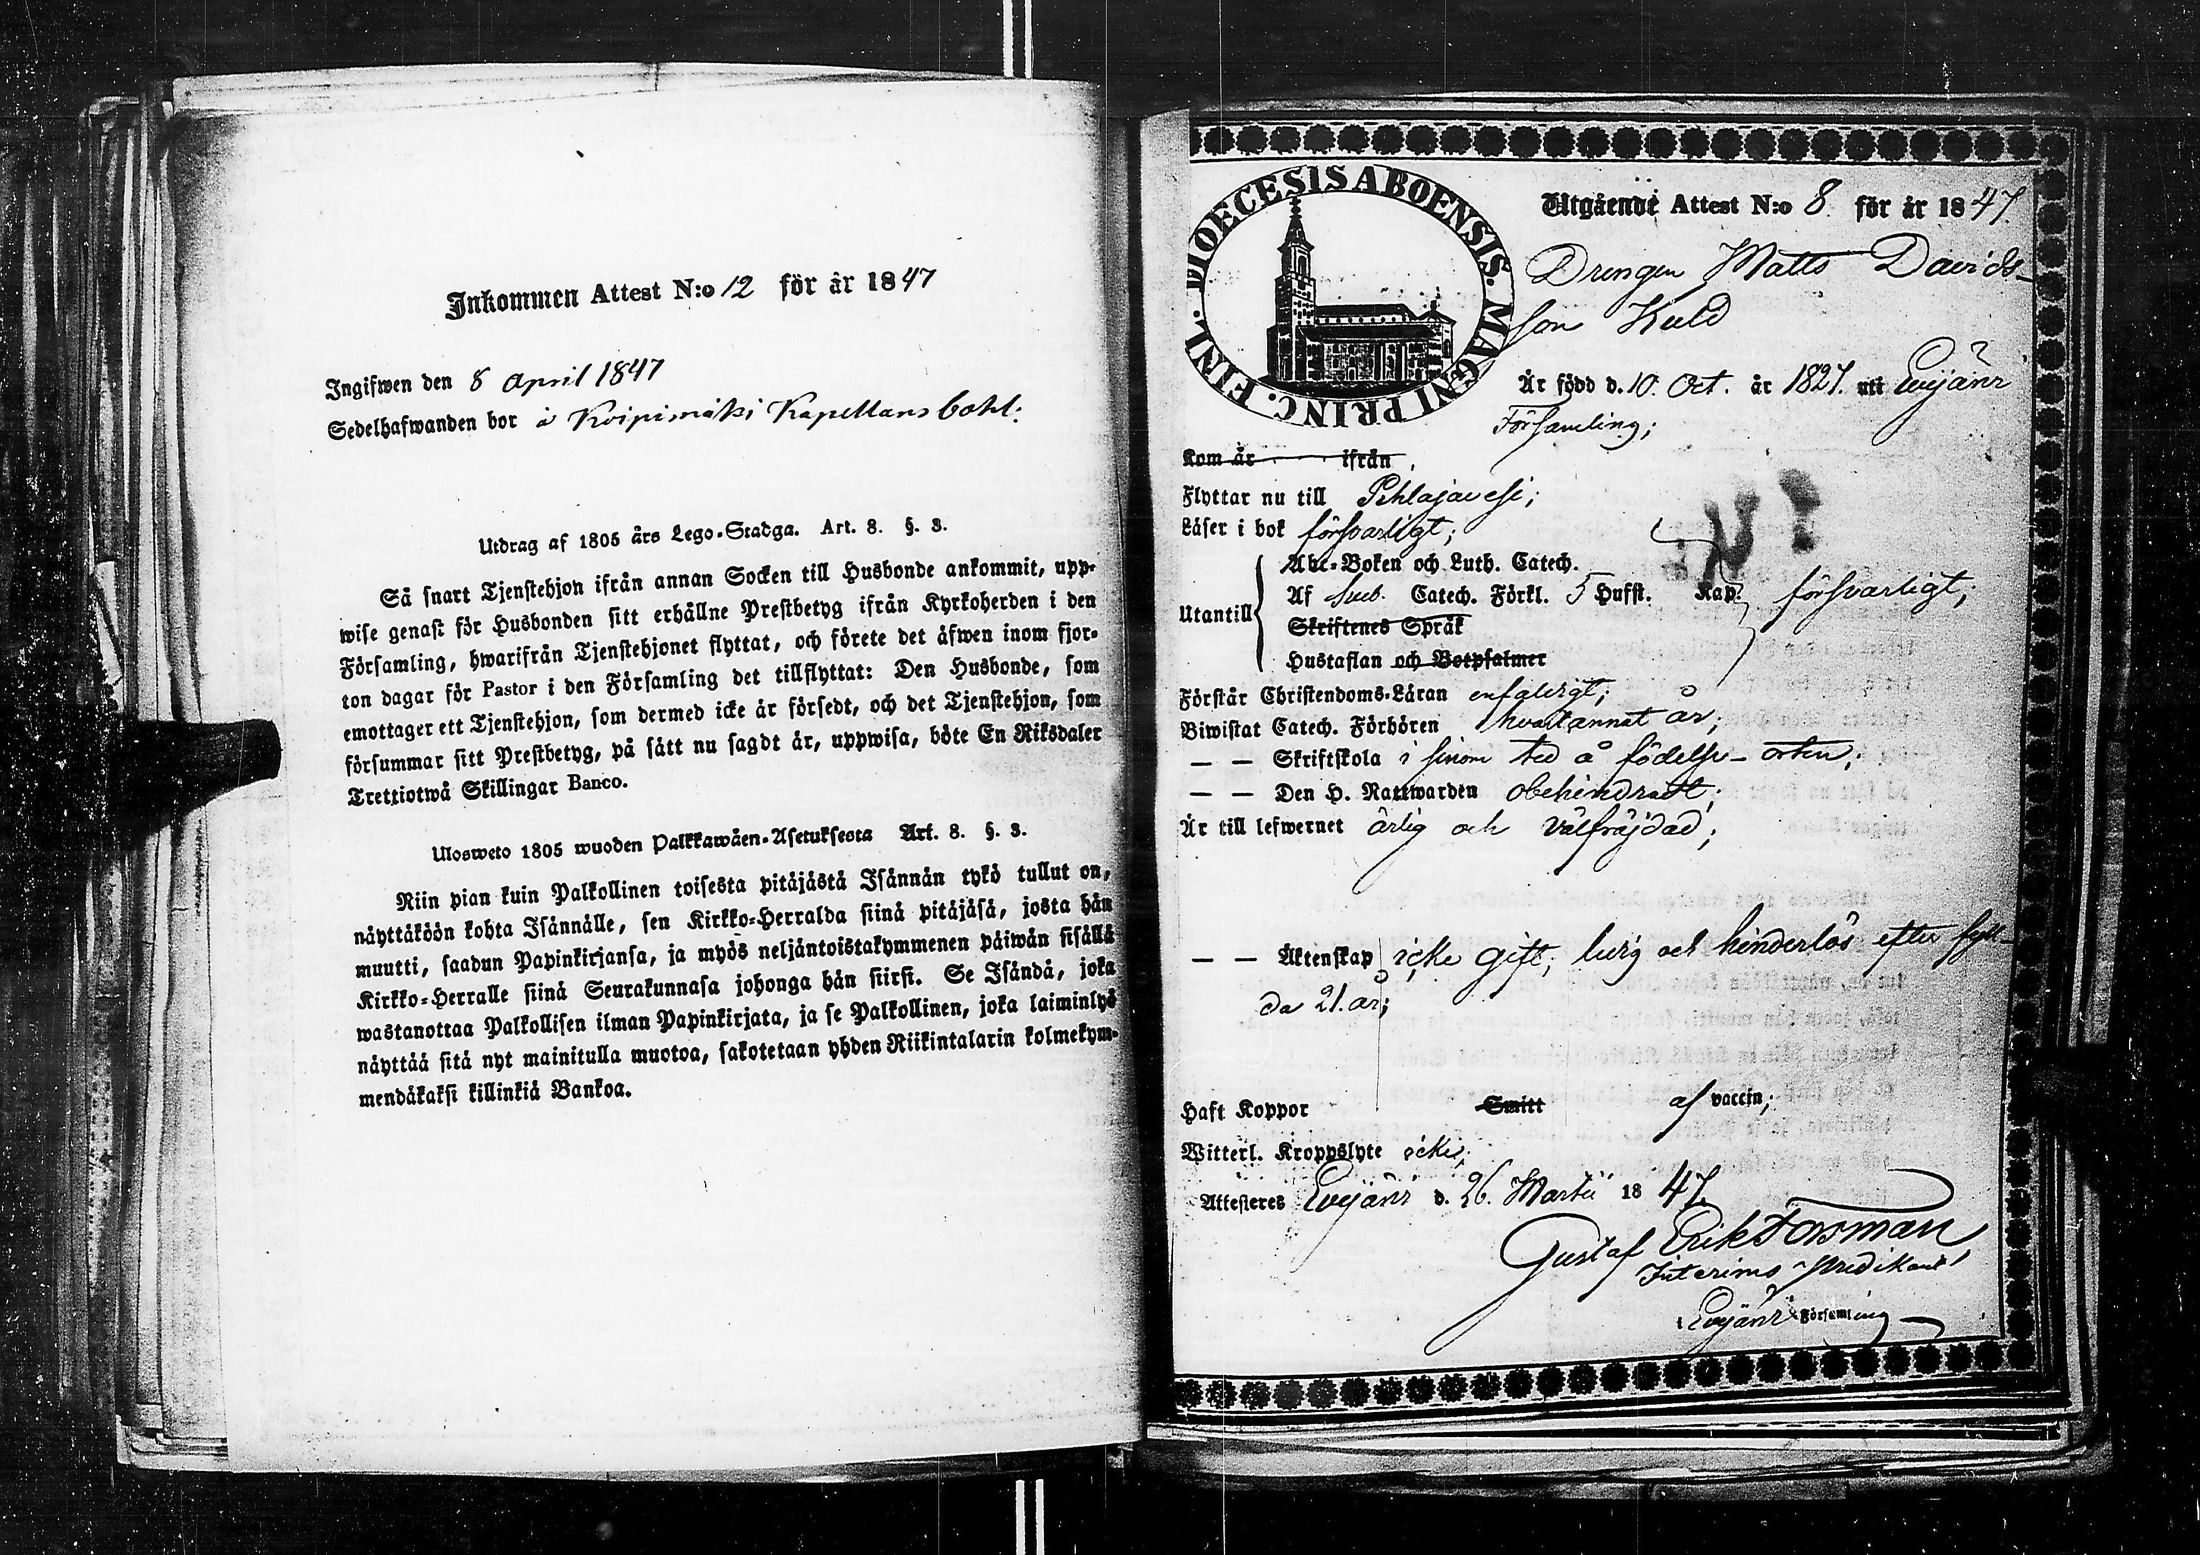 Inkommen Attest N:o 12 för år 1847
Ingifwen den 8 April 1847
Sedelhafwanden bor å Koipimäki Kapellans bohl:
Utdrag af 1805 års Lego-Stadga. Art. 8. §. 3.
Så snart Tjenstehjon ifrån annan Socken till Husbonde ankommit, upp-
wise genast för Husbonden sitt erhållne Prestbetyg ifrån Kyrkoherden i den
Församling, hwarifrån Tjenstehjonet flyttat, och förete det äfwen inom fjor-
ton dagar för Pastor i den Församling det tillflyttat: Den Husbonde, som
emottager ett Tjenstehjon, som dermed icke är försedt, och det Tjenstehjon, som
försummar sitt Prestbetyg, på sätt nu sagdt är, uppwisa, böte En Riksdaler
Trettiotwå Skillingar Banco.
Ulosweto 1805 wuoden Palkkawäen-Asetuksesta Art. 8. §. 3.
Niin pian kuin Palkollinen toisesta pitäjästä Isännän tykö tullut on,
näyttäköön kohta Isännälle, sen Kirkko-Herralda siinä pitäjäsä, josta hän
muutti, saadun Papinkirjansa, ja myös neljäntoistakymmenen päiwän sisällä
Kirkko-Herralle siinä Seurakunnasa johonga hän siirsi. Se Isändä, joka
wastanottaa Palkollisen ilman Papinkirjata, ja se Palkollinen, joka laiminlyö
näyttää sitä nyt mainitulla muotoa, sakotetaan yhden Riikintalarin kolmekym-
mendäkaksi killinkiä Bankoa.
DIOECESIS ABOENSIS. MAGNI PRINC. FINL.
Utgående Attest N:o 8 för år 1847.
Drengen Matts Davids-
son Kuld
Är född d. 10. Oct. år 1827. uti Evijärvi
Församling;
Kom år ifrån
Flyttar nu till Pihlajavesi;
Läser i bok försvarligt;
Abc-Boken och Luth. Catech.
Utantill Af Sveb. Catech. Förkl. 5 Hufst. Kap. försvarligt;
Skriftenes Språk
Hustaflan och Botpsalmer
Förstår Christendoms-Läran enfaldigt;
Biwistat Catech. Förhören hvartannat år;
— — Skriftskola i sinom tid å födelse-orten;
— — Den H. Nattwarden obehindradt;
Är till lefwernet ärlig och välfräjdad;
— — Äktenskap icke gift, ledig och hinderlös efter fyll-
da 21. år;
Haft Koppor Smitt af vaccin;
Witterl. Kroppslyte icke;
Attesteres Evijärvi d. 26. Martii 1847.
Gustaf Erik Forsman
Interims Predikant
i Evijärvi Församling